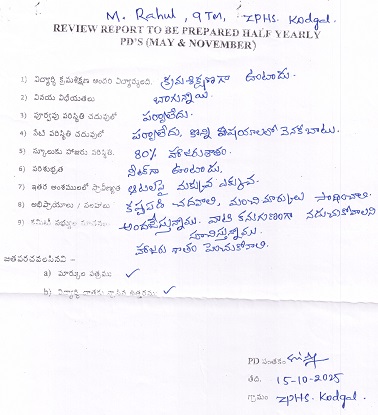 M. Rahul, 9TM, ZPHS. Kodgal.
REVIEW REPORT TO BE PREPARED HALF YEARLY
PD'S (MAY & NOVEMBER)
1) విద్యార్థి క్రమశిక్షణ క్రమశిక్షణగా ఉంటాడు.
2) వినయ విధేయతలు బాగున్నాయి.
3) పూర్వపు పరిస్థితి చదువులో పర్వాలేదు.
4) నేటి పరిస్థితి చదువులో పర్వాలేదు, కొన్ని విషయాలలో వెనకబాటు.
5) స్కూలుకు హాజరు పరిస్థితి. 80% హాజరుశాతం.
6) పరిశుభ్రత నీట్‌గా ఉంటాడు,
7) ఇతర అంశములలో ప్రావీణ్యత ఆటలపై మక్కువ ఎక్కువ.
8) అభిప్రాయాలు / సలహాలు కష్టపడి చదవాలి, మంచి మార్కులు సాధించాలి.
9) కమిటీ సభ్యుల సూచనలు అందజేస్తున్నాము. వాటి కనుగుణంగా నడుచుకోవాలని
సూచిస్తున్నాము.
హాజరు శాతం పెంచుకోవాలి.
జతపరచవలసినవి :-
a) మార్కుల పత్రము ✓
b) విద్యార్థి దాతకు వ్రాసిన ఉత్తరము ✓
PD సంతకం
తేది. 15-10-2025
గ్రామం ZPHS. Kodgal.